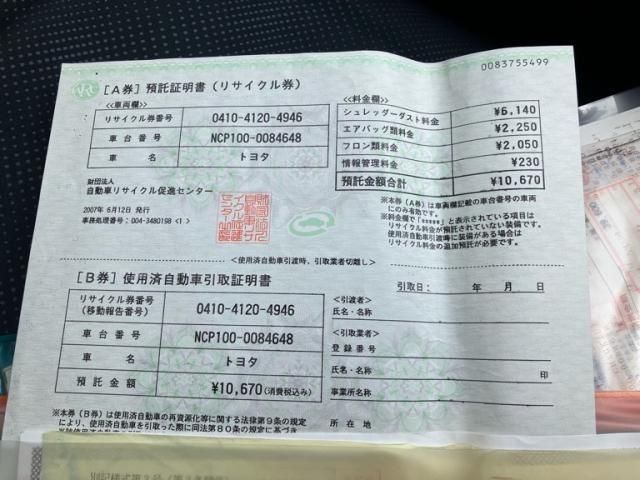 0083755499
[A券] 預託証明書 (リサイクル券)
≪車両欄≫
リサイクル券番号 0410-4120-4946
車台番号 NCP100-0084648
車名 トヨタ
財団法人
自動車リサイクル促進センター
2007年 6月12日 発行
事務処理番号：004-3480198 <1>
≪料金欄≫
シュレッダーダスト料金 ¥6,140
エアバッグ類料金 ¥2,250
フロン類料金 ¥2,050
情報管理料金 ¥230
預託金額合計 ¥10,670
※本券（A券）は車両欄記載の車台番号の車両
にのみ有効です。
※料金欄で「*****」と表示されている項目は
リサイクル料金が預託されていない装備です。
使用済自動車引渡時に装備がある場合は
リサイクル料金の追加預託が必要です。
<使用済自動車引渡時、引取業者切離し>
[B券] 使用済自動車引取証明書
リサイクル券番号
(移動報告番号) 0410-4120-4946
車台番号 NCP100-0084648
車名 トヨタ
預託金額 ¥10,670(消費税込み)
引取日： 年 月 日
<引渡者>
氏名・名称
<引取業者>
登録番号
氏名・名称 印
事業所名称
所在地
※本券（B券）は使用済自動車の再資源化等に関する法律第９条の規定
により、使用済自動車を引取った際に同法第８０条の規定に基づき